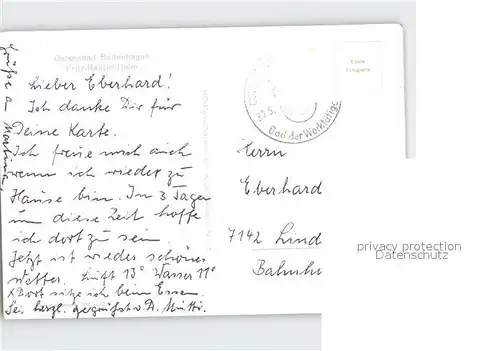 Ostseebad Boltenhagen
Fritz-Reuter-Heim
Grüße a Martina,
Lieber Eberhard!
Ich danke Dir für
Deine Karte.
Ich freue mich auch
wenn ich wieder zu
Hause bin. In 3 Tagen
um diese Zeit hoffe
ich dort zu sein.
Jetzt ist wieder schönes
Wetter. Luft 13° Wasser 11°
x Dort sitze ich beim Essen
Sei herzl. gegrüßt v. D. Mutti.
Bad der Werktätigen
Echte
Fotografie
Herrn
Eberhard
7142 Lind
Bahnho
privacy protection
Datenschutz